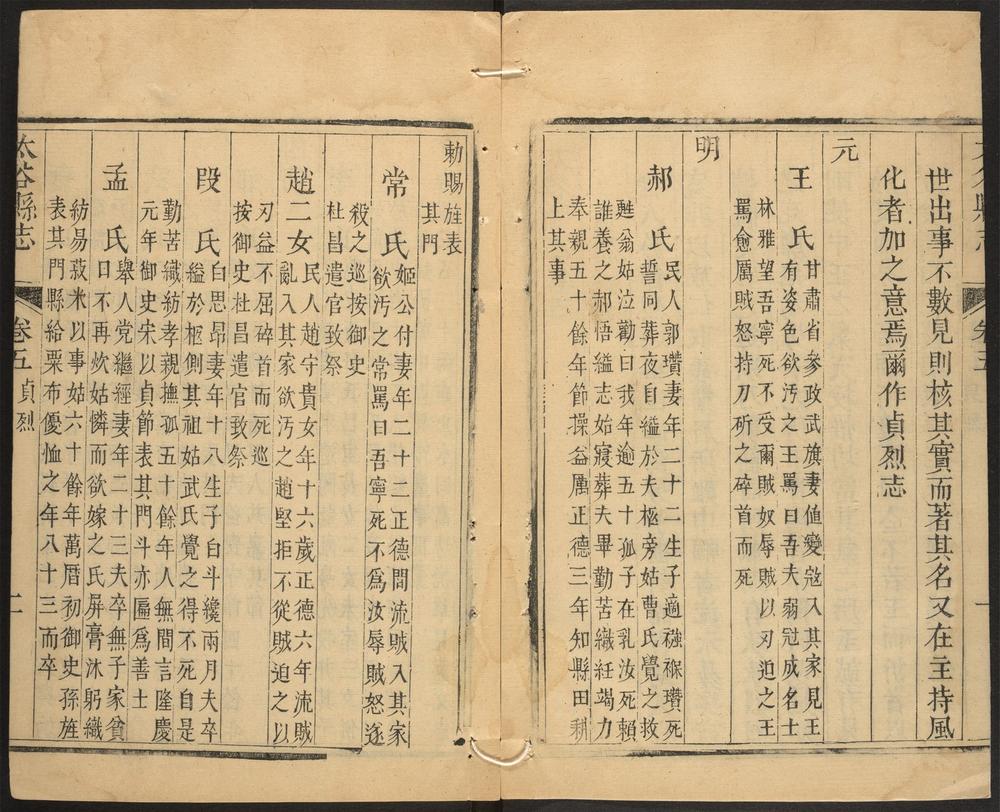 世出事不數見則核其實而著其名又在主持風
化者加之意焉爾作貞烈志
元
王氏
甘肅省參政武旗妻值變寇入其家見王
有姿色欲汚之王罵曰吾夫弱冠成名士
林雅望吾寧死不受爾賊奴辱賊以刃迫之王
罵愈厲賊怒持刀斫之碎首而死
明
郝氏
民人郭瓚妻年二十二生子適襁褓瓚死
誓同葬夜自縊於夫柩旁姑曹氏覺之救
甦翁姑泣勸曰我年逾五十孤子在乳汝死賴
誰養之郝悟繼志姑寢葬夫畢勤苦織紝竭力
奉親五十餘年節操益厲正德三年知縣田耕
上其事
勅賜旌表
其門
常氏
姬公付妻年二十三正德間流賊入其家
欲汚之常罵曰吾寧死不爲汝辱賊怒逐
殺之巡按御史
杜昌遣官致祭
趙二女
民人趙守貴女年十六歲正德六年流賊
亂入其家欲汚之趙堅拒不從賊迫之以
刃益不屈碎首而死巡
按御史杜昌遣官致祭
段氏
白思昂妻年十八生子白斗纔兩月夫卒
縊於柩側其祖姑武氏覺之得不死自是
勤苦織紡孝親撫孤五十餘年人無間言隆慶
元年御史宋以貞節表其門斗亦匾爲善士
孟氏
皋人党繼經妻年二十三夫卒無子家貧
日不再炊姑憐而欲嫁之氏屏膏沐躬織
紡易菽米以事姑六十餘年萬曆初御史孫旌
表其門縣給粟布優恤之年八十三而卒
太谷縣志
卷五
貞烈
二